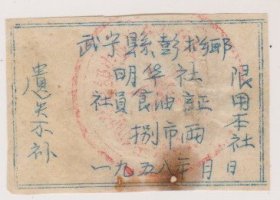 武宁縣彭坪鄉
明华社
社員食油証
捌市兩
一九五八年 月 日
限用本社
遺失不补